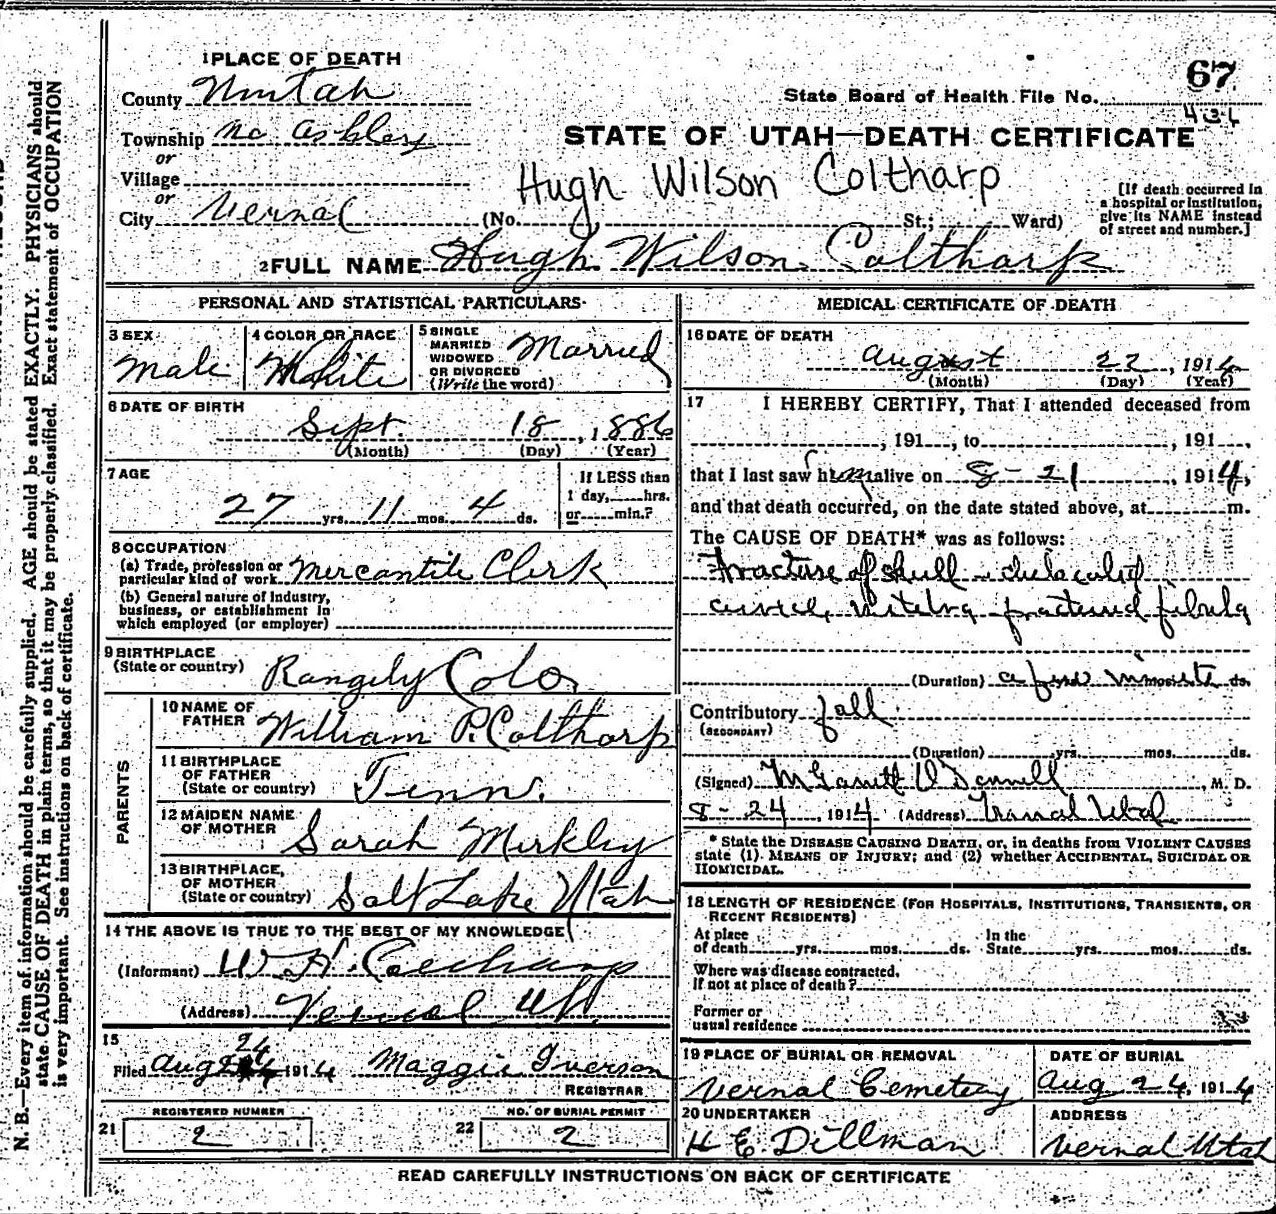 1 PLACE OF DEATH
County Uintah
Township No. Ashley
or
Village
or
City Vernal (No. St.; Ward)
67
State Board of Health File No.
431
STATE OF UTAH—DEATH CERTIFICATE
Hugh Wilson Coltharp
[If death occurred in
a hospital or institution,
give its NAME instead
of street and number.]
2 FULL NAME Hugh Wilson Coltharp
PERSONAL AND STATISTICAL PARTICULARS
3 SEX
Male
4 COLOR OR RACE
White
5 SINGLE
MARRIED
WIDOWED
OR DIVORCED
(Write the word)
Married
6 DATE OF BIRTH
Sept. 18, 1886
(Month) (Day) (Year)
7 AGE
27 yrs. 11 mos. 4 ds.
If LESS than
1 day, hrs.
or min.?
8 OCCUPATION
(a) Trade, profession or
particular kind of work Mercantile Clerk
(b) General nature of industry,
business, or establishment in
which employed (or employer)
9 BIRTHPLACE
(State or country) Rangely Colo
PARENTS
10 NAME OF
FATHER William P. Coltharp
11 BIRTHPLACE
OF FATHER
(State or country) Tenn.
12 MAIDEN NAME
OF MOTHER Sarah Merkley
13 BIRTHPLACE,
OF MOTHER
(State or country) Salt Lake Utah
14 THE ABOVE IS TRUE TO THE BEST OF MY KNOWLEDGE
(Informant) W. H. Coltharp
(Address) Vernal Ut.
15
24
Filed Aug 1914 Maggie Iverson
REGISTRAR
REGISTERED NUMBER
21 2
NO. OF BURIAL PERMIT
22 2
MEDICAL CERTIFICATE OF DEATH
16 DATE OF DEATH
August 22, 1914
(Month) (Day) (Year)
17 I HEREBY CERTIFY, That I attended deceased from
, 191 , to , 191 ,
that I last saw him alive on 8-21, 1914,
and that death occurred, on the date stated above, at m.
The CAUSE OF DEATH* was as follows:
Fracture of skull
fractured fibula
(Duration) a few minutes mos. ds.
Contributory fall
(SECONDARY)
(Duration) yrs. mos. ds.
(Signed) M. D.
8-24, 1914 (Address) Vernal Utah
* State the DISEASE CAUSING DEATH, or, in deaths from VIOLENT CAUSES
state (1) MEANS OF INJURY; and (2) whether ACCIDENTAL, SUICIDAL OR
HOMICIDAL.
18 LENGTH OF RESIDENCE (FOR HOSPITALS, INSTITUTIONS, TRANSIENTS, OR
RECENT RESIDENTS)
At place
of death yrs. mos. ds.
In the
State yrs. mos. ds.
Where was disease contracted,
If not at place of death?
Former or
usual residence
19 PLACE OF BURIAL OR REMOVAL
Vernal Cemetery
DATE OF BURIAL
Aug 24, 1914
20 UNDERTAKER
H E. Dillman
ADDRESS
Vernal Utah
READ CAREFULLY INSTRUCTIONS ON BACK OF CERTIFICATE
N. B.—Every item of information should be carefully supplied. AGE should be stated EXACTLY. PHYSICIANS should
state CAUSE OF DEATH in plain terms, so that it may be properly classified. Exact statement of OCCUPATION
is very important. See instructions on back of certificate.